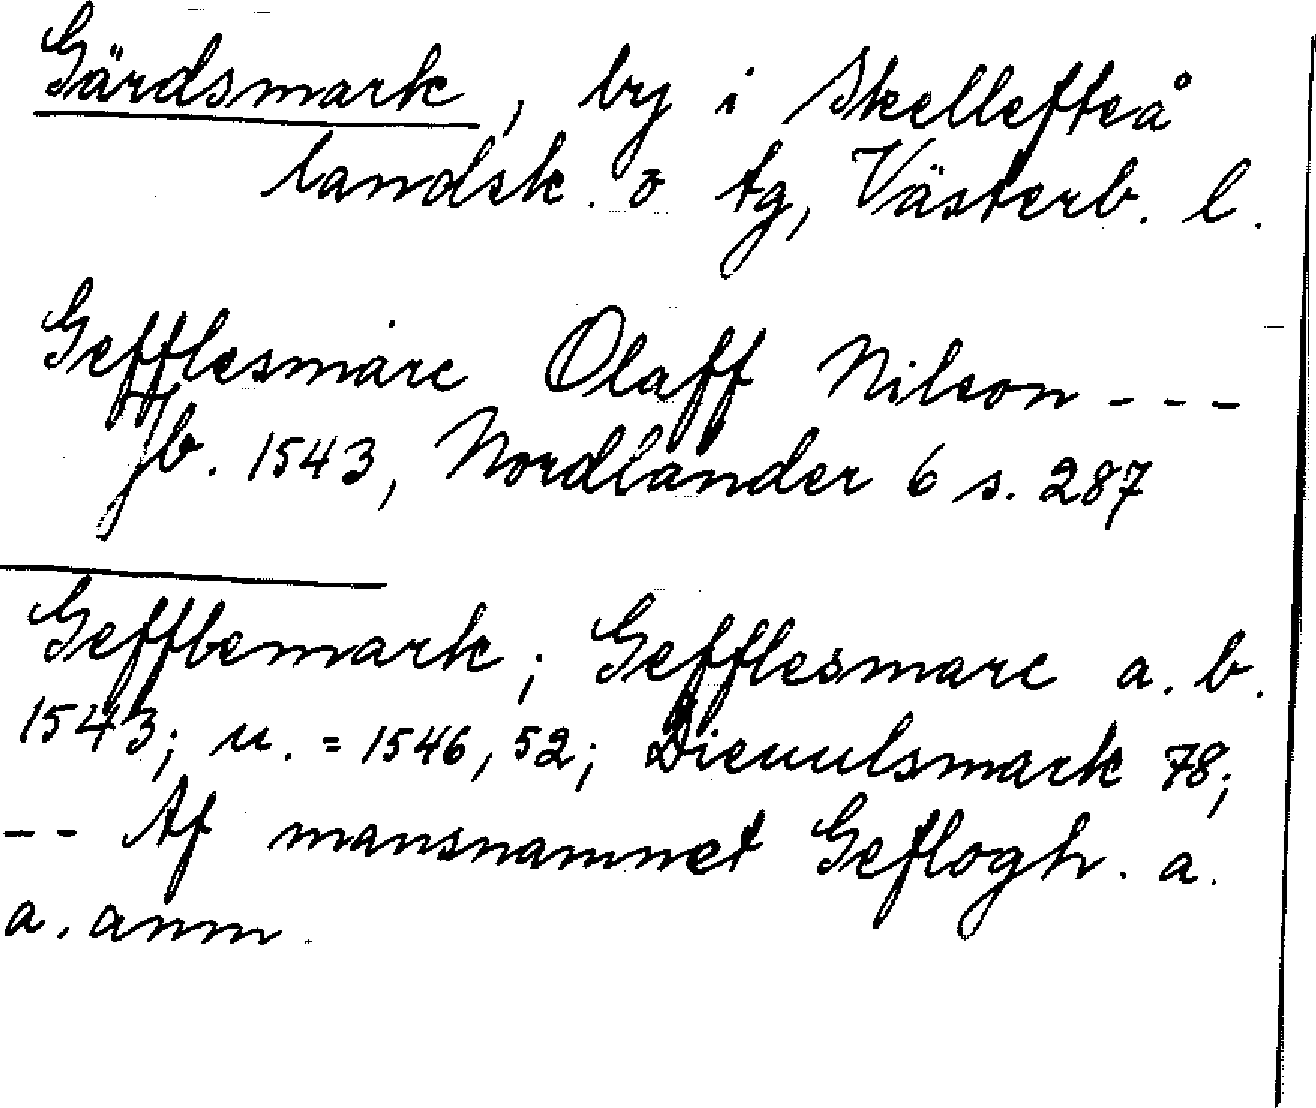 Gärdsmark, by i Skellefteå
landsk. o tg, Västerb. l.
Gefflesmarc Olaff Nilson ---
Jb. 1543, Nordlander 6 s. 287
Geffbemark; Gefflesmarc a. b.
1543; u. = 1546, 52; Dieuulsmark 78;
-- Af mansnamnet Geflogh. a.
a. anm.